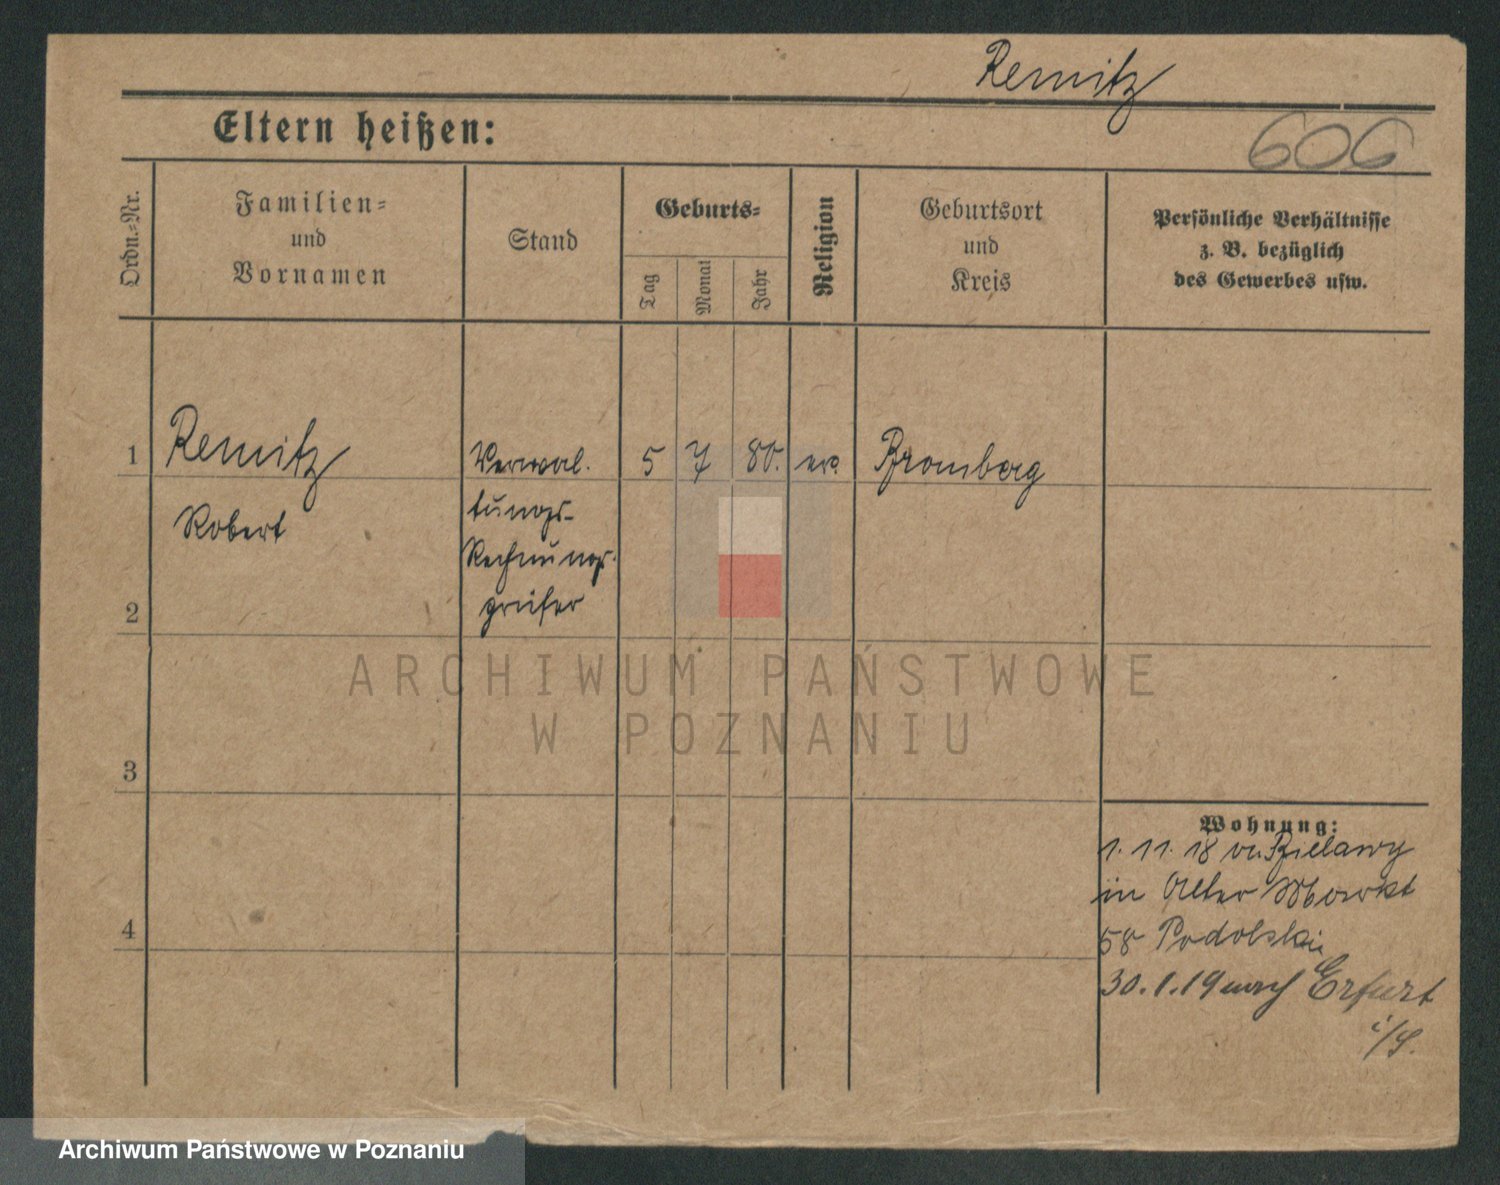 Remitz
606
Eltern heißen:
Ordn.-Nr.
Familien=
und
Vornamen
Stand
Geburts=
Tag
Monat
Jahr
Religion
Geburtsort
und
Kreis
Persönliche Verhältnisse
z. B. bezüglich
des Gewerbes usw.
1
Remitz
Verwal.
5
7
80.
ev.
Bromberg
Robert
tungs-
Rechnungs-
prüfer
2
3
4
Wohnung:
1. 11. 18 Bielawy
in Alter Markt
58 Podolski
30.1.19 nach Erfurt
i/S.
ARCHIWUM PAŃSTWOWE
W POZNANIU
Archiwum Państwowe w Poznaniu